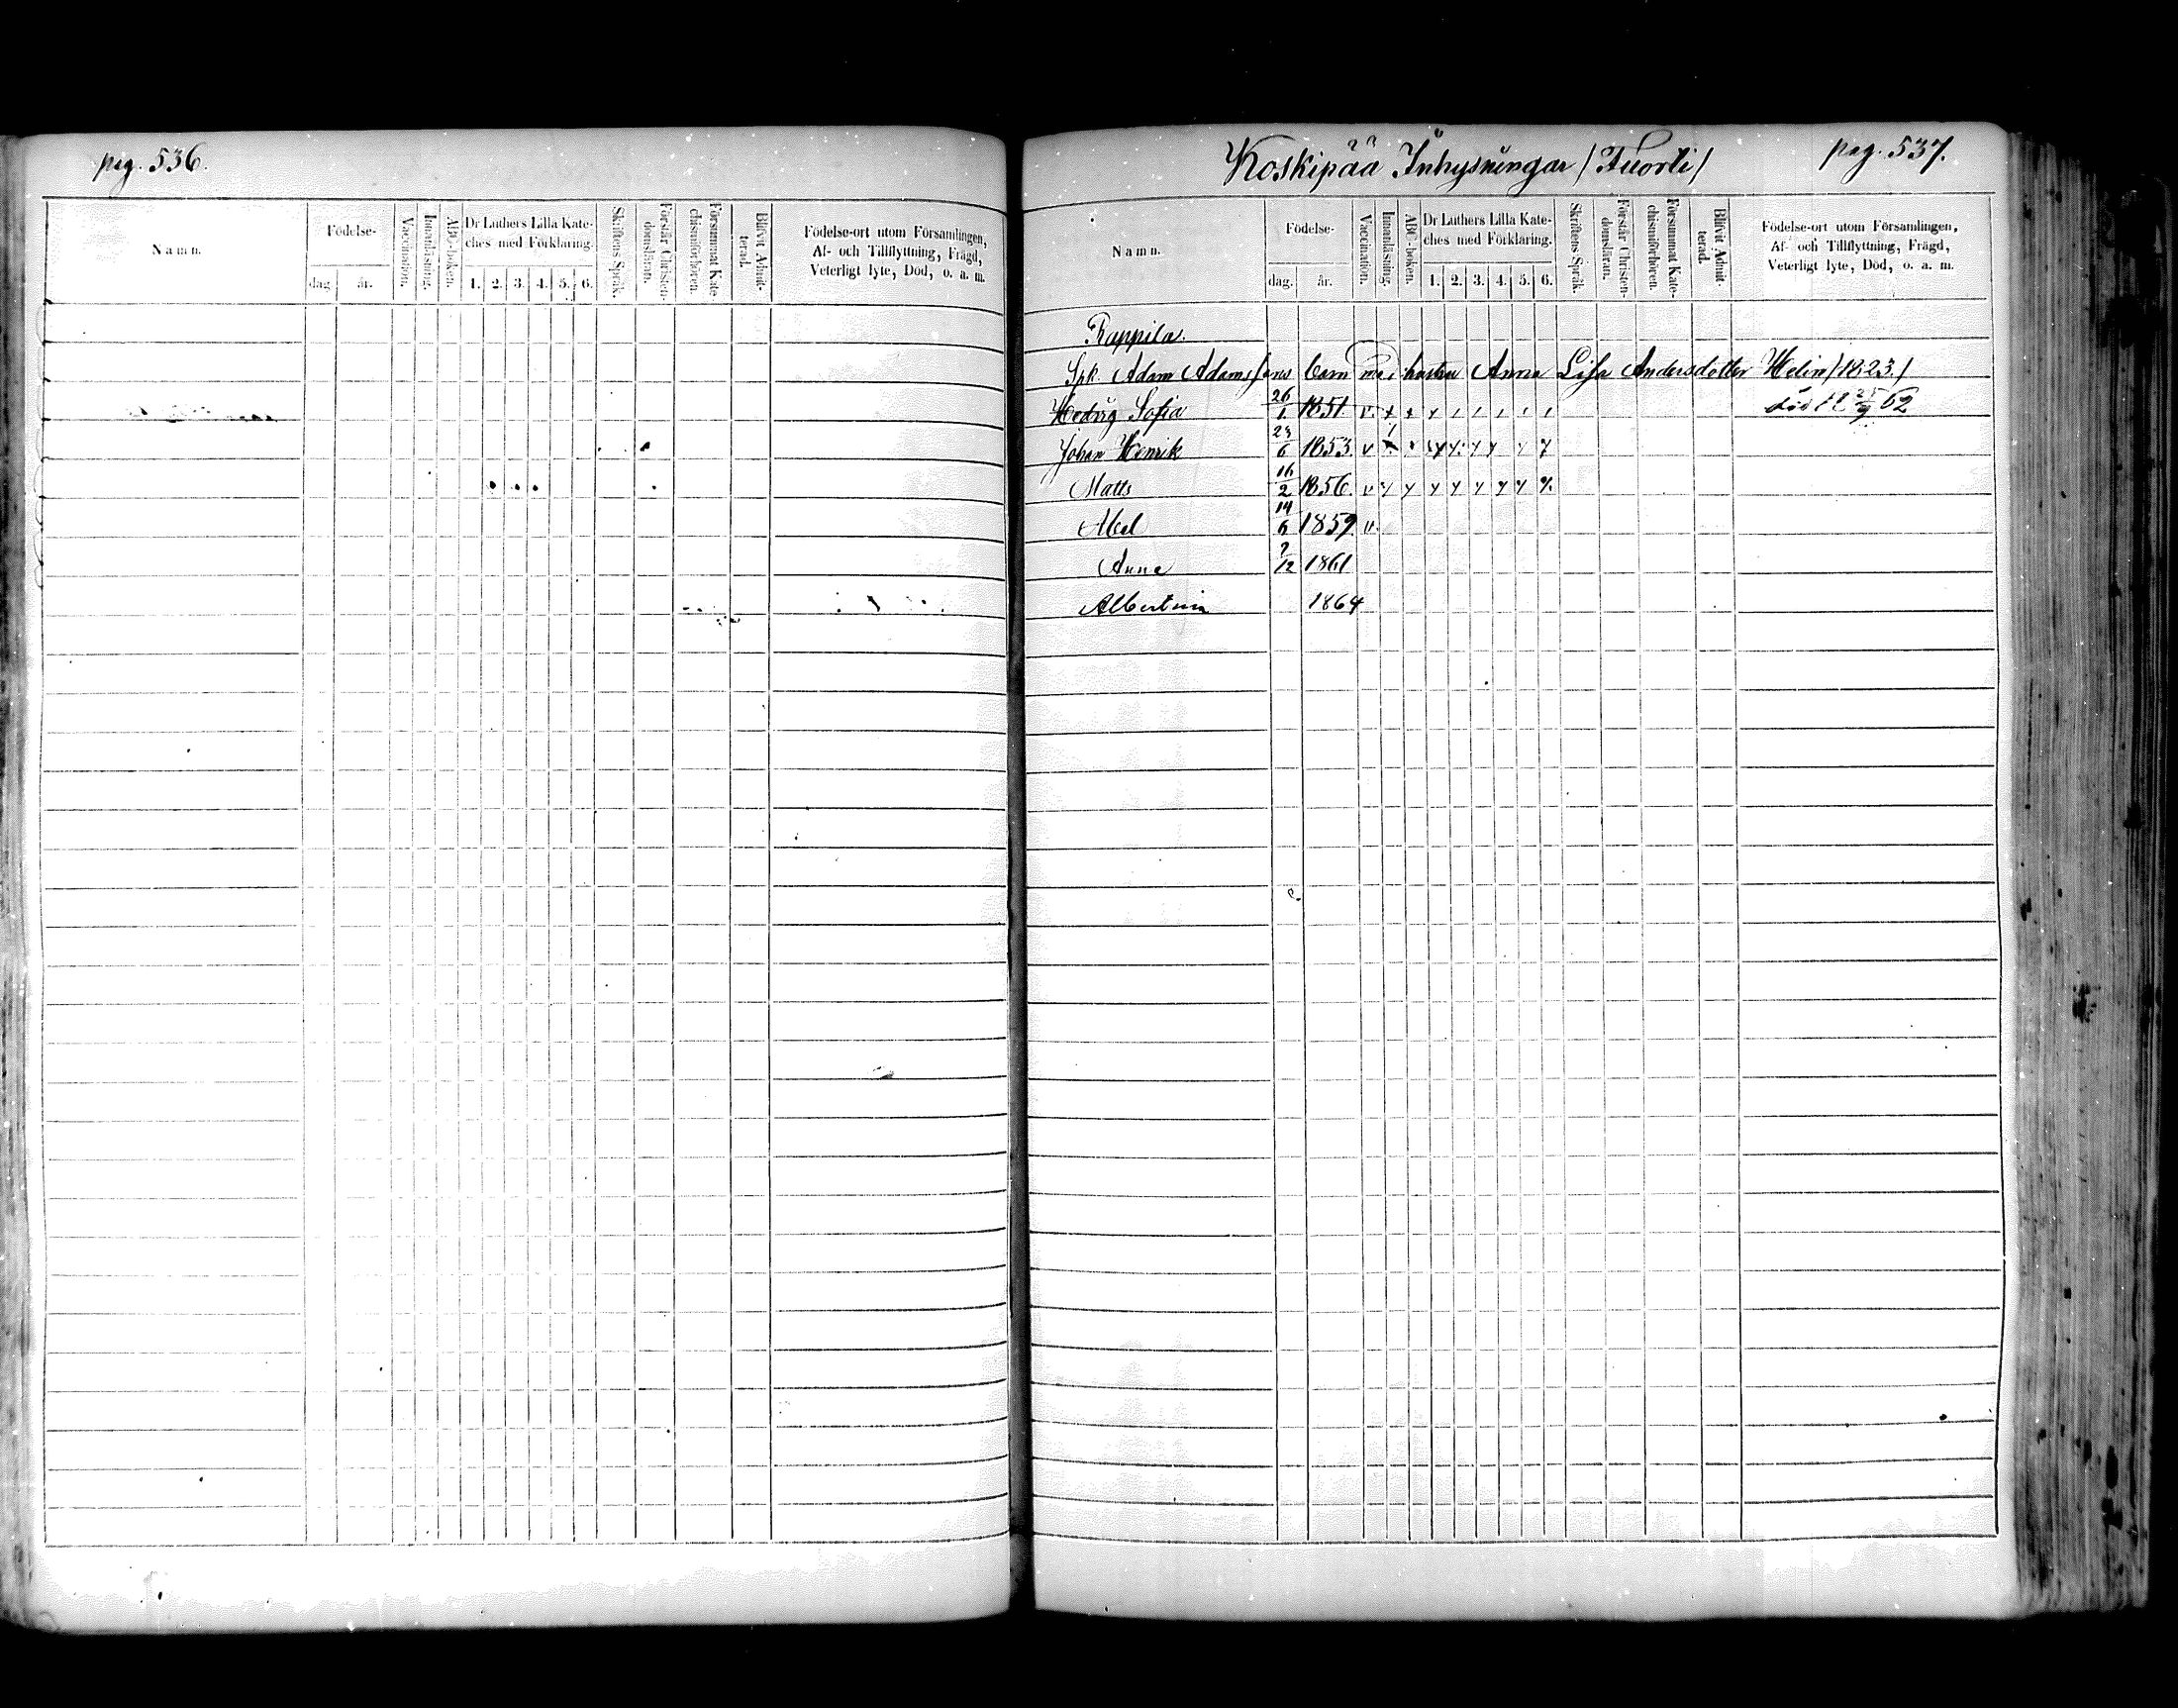 pag. 536.
Namn.
Födelse-
dag.
år.
Vaccination.
Innanläsning.
ABC-boken.
Dr Luthers Lilla Kate-
ches med Förklaring.
1. 2. 3. 4. 5. 6.
Skriftens Språk.
Förstår Christen-
domsläran.
Försummat Kate-
chismiförhören.
Blifvit Admit-
terad.
Födelse-ort utom Församlingen,
Af- och Tillflyttning, Frägd,
Veterligt lyte, Död, o. a. m.
Koskipää Inhysningar /Tuorli/
pag. 537.
Namn.
Födelse-
dag.
år.
Vaccination.
Innanläsning.
ABC-boken.
Dr Luthers Lilla Kate-
ches med Förklaring.
1. 2. 3. 4. 5. 6.
Skriftens Språk.
Förstår Christen-
domsläran.
Försummat Kate-
chismiförhören.
Blifvit Admit-
terad.
Födelse-ort utom Församlingen,
Af- och Tillflyttning, Frägd,
Veterligt lyte, Död, o. a. m.
Rappila.
Spk. Adam Adamssons barn med hustru Anna Lisa Andersdotter Helin /1823/
Hedvig Sofia 26/1 1851 v. död 62
Johan Henrik 1853 v
Matts 16/2 1856. v
Abel 14/6 1859 v.
Anna 7/12 1861
Albertina 1864